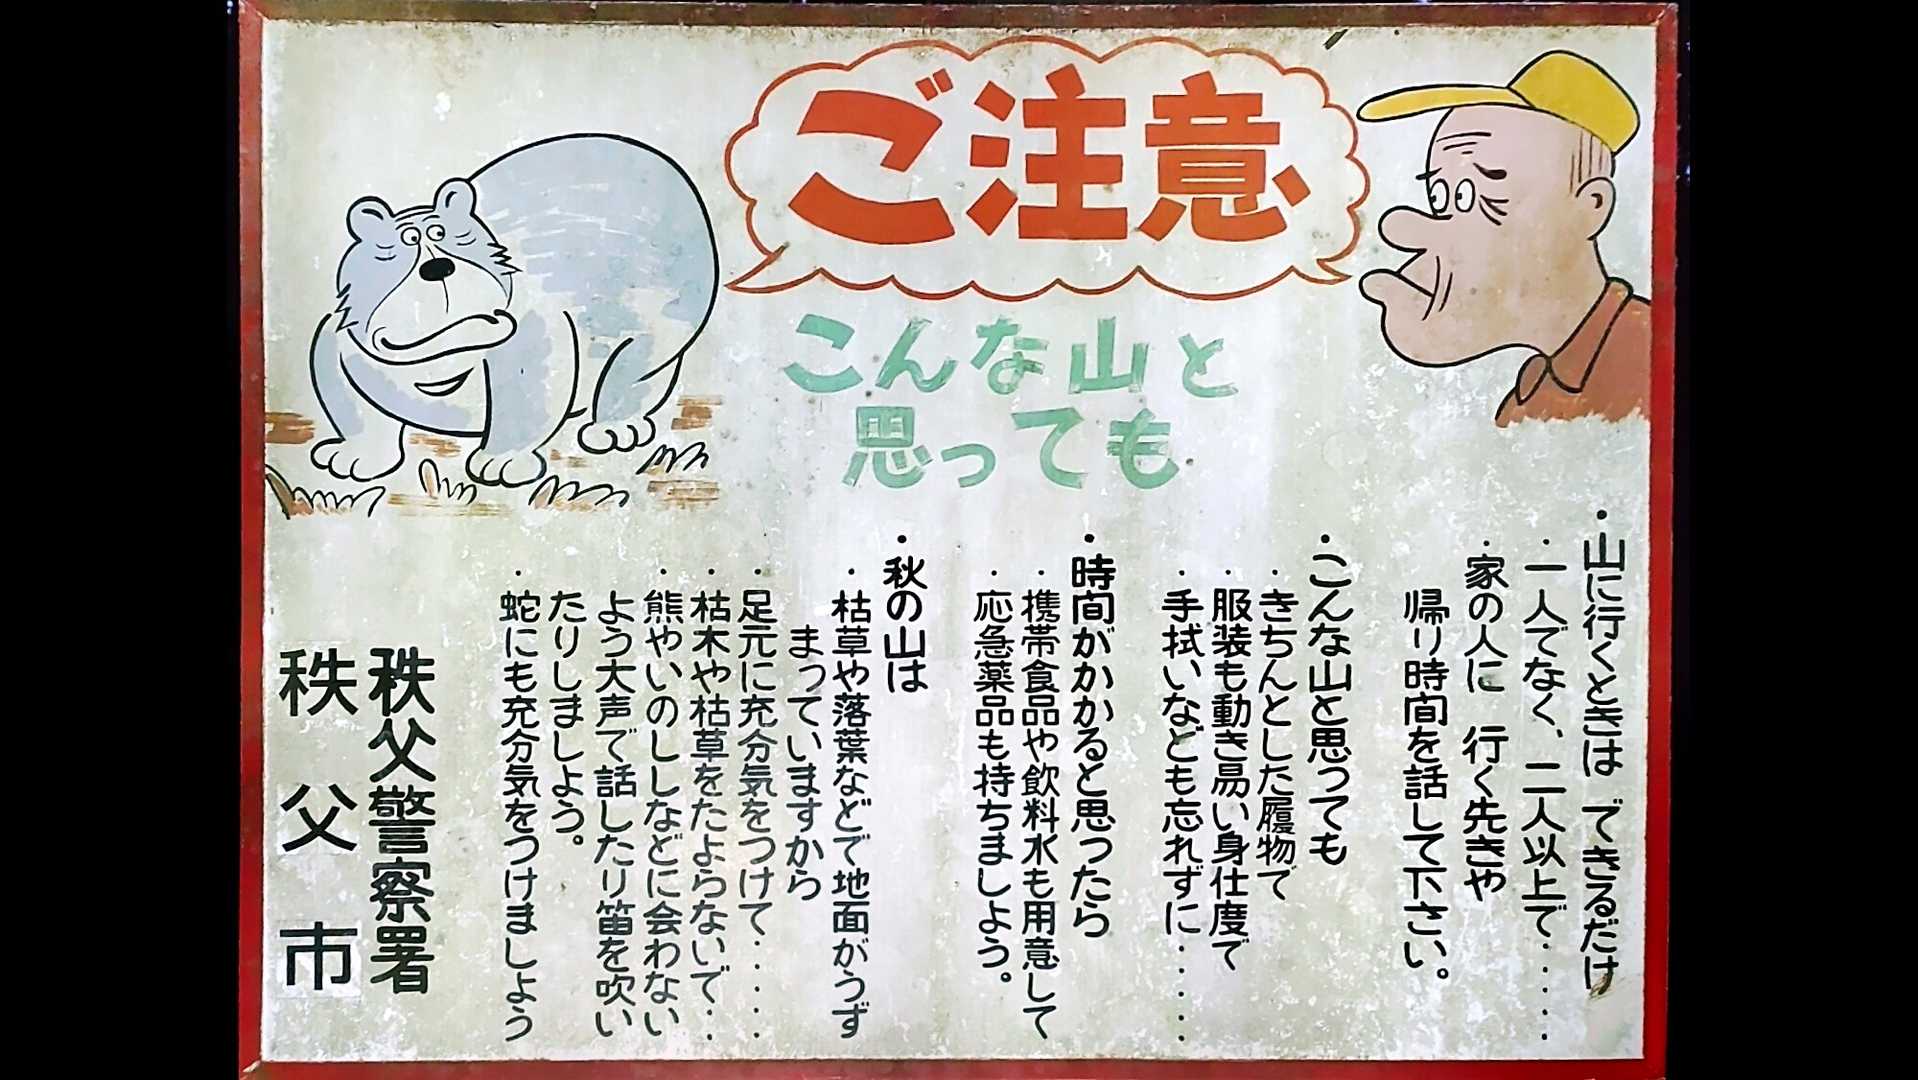 ご注意
こんな山と
思っても
・山に行くときは できるだけ
・一人でなく、二人以上で・・・・・
・家の人に 行く先きや
帰り時間を話して下さい。
・こんな山と思っても
・きちんとした履物で
・服装も動き易い身仕度で
・手拭いなども忘れずに・・・・・
・時間がかかると思ったら
・携帯食品や飲料水も用意して
・応急薬品も持ちましよう。
・秋の山は
・枯草や落葉などで地面がうず
まっていますから
・足元に充分気をつけて・・・・・
・枯木や枯草をたよらないで・・・
・熊やいのししなどに会わない
よう大声で話したり笛を吹い
たりしましよう。
・蛇にも充分気をつけましよう
秩父警察署
秩父市